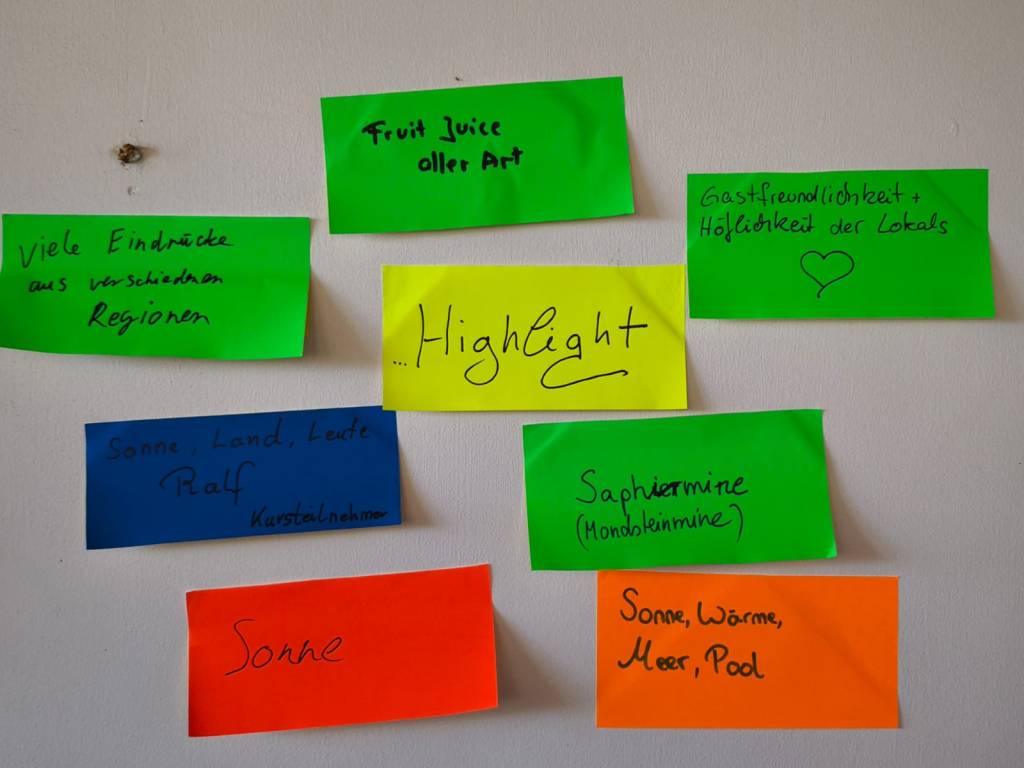 Fruit Juice
aller Art
Gastfreundlichkeit +
Höflichkeit der Lokals
Viele Eindrücke
aus verschiedenen
Regionen
...Highlight
Sonne, Land, Leute
Ralf
Kursteilnehmer
Saphiermine
(Mondsteinmine)
Sonne
Sonne, Wärme,
Meer, Pool